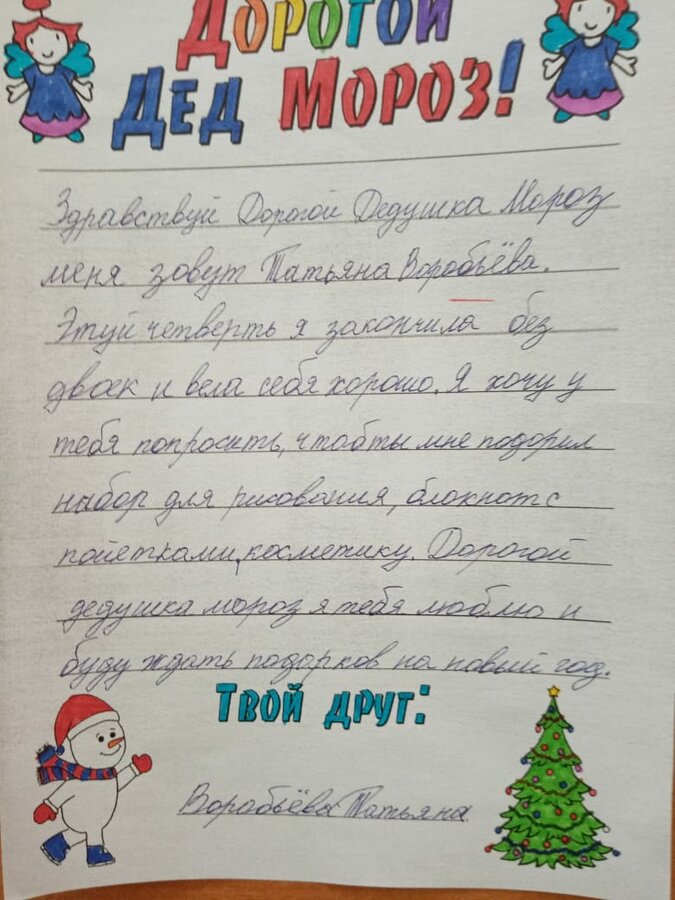 ДОРОГОЙ
ДЕД МОРОЗ!
Здравствуй Дорогой Дедушка Мороз
меня зовут Татьяна Воробьёва.
Этуй четверть я закончила без
двоек и вела себя хорошо. Я хочу у
тебя попросить, чтобты мне подорил
набор для рисования, блокнот с
пойетками, косметику. Дорогой
дедушка мороз я тебя люблю и
буду ждать подарков на новый год.
ТВОЙ ДРУГ:
Воробьёва Татьяна